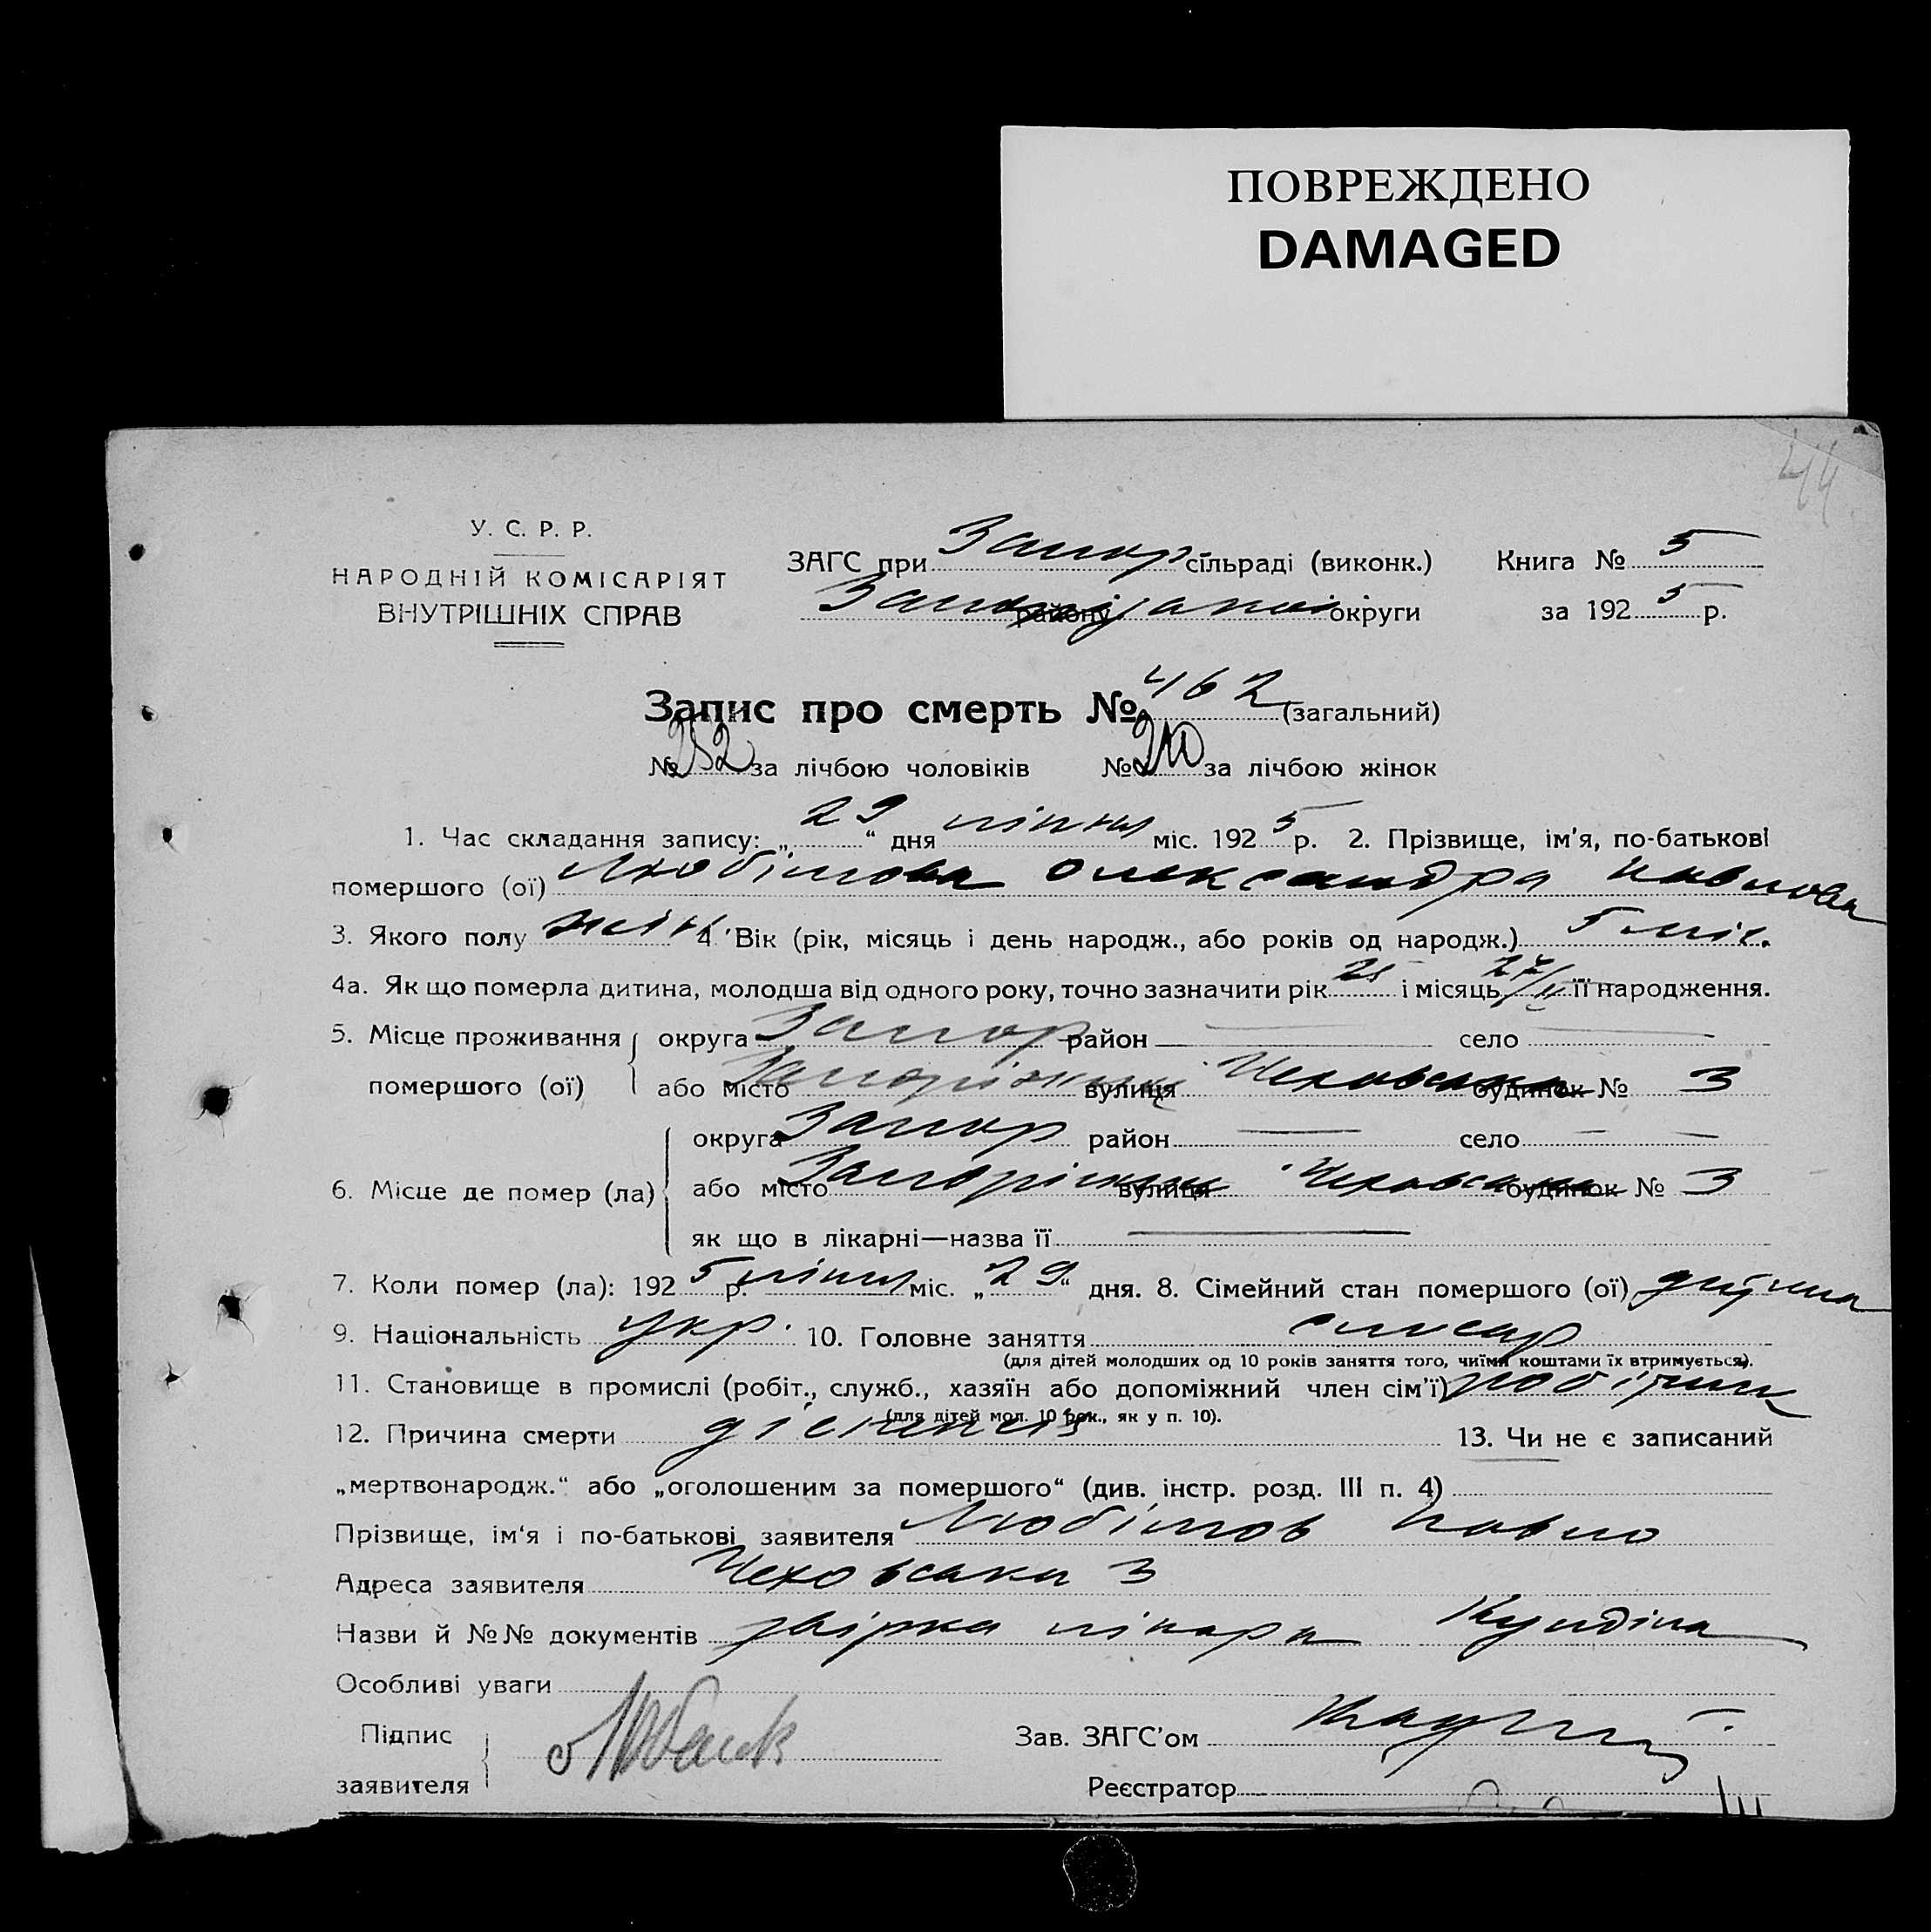 ПОВРЕЖДЕНО
DAMAGED
44
У. С. Р. Р.
НАРОДНІЙ КОМІСАРІЯТ
ВНУТРІШНІХ СПРАВ
ЗАГС при Запор. сільраді (виконк.)
району округи
Книга № 5
за 192 5 р.
Запис про смерть № 462 (загальний)
№ 252 за лічбою чоловіків № 210 за лічбою жінок
1. Час складання запису: „ 29 “ дня липня міс. 192 5 р. 2. Прізвище, ім'я, по-батькові
помершого (ої) Любімова Олександра Павлова
3. Якого полу жін. 4. Вік (рік, місяць і день народж., або років од народж.) 5 міс.
4а. Як що померла дитина, молодша від одного року, точно зазначити рік 25 і місяць 27/II її народження.
5. Місце проживання округа Запор район — село —
помершого (ої) або місто Запоріжжя вулиця Чеховська будинок № 3
округа Запор район — село —
6. Місце де помер (ла) або місто Запоріжжя вулиця Чеховська будинок № 3
як що в лікарні—назва її —
7. Коли помер (ла): 192 5 р. липня міс. „ 29 “ дня. 8. Сімейний стан помершого (ої) дитина
9. Національність укр. 10. Головне заняття слюсар
(для дітей молодших од 10 років заняття того, чиїми коштами їх втримується).
11. Становище в промислі (робіт., служб., хазяїн або допоміжний член сім'ї) робітник
(для дітей мол. 10 рок., як у п. 10).
12. Причина смерти 13. Чи не є записаний
„мертвонародж.“ або „оголошеним за помершого“ (див. інстр. розд. III п. 4)
Прізвище, ім'я і по-батькові заявителя Любімов Павло
Адреса заявителя Чеховська 3
Назви й №№ документів лікаря
Особливі уваги
Підпис
заявителя
Зав. ЗАГС'ом
Реєстратор